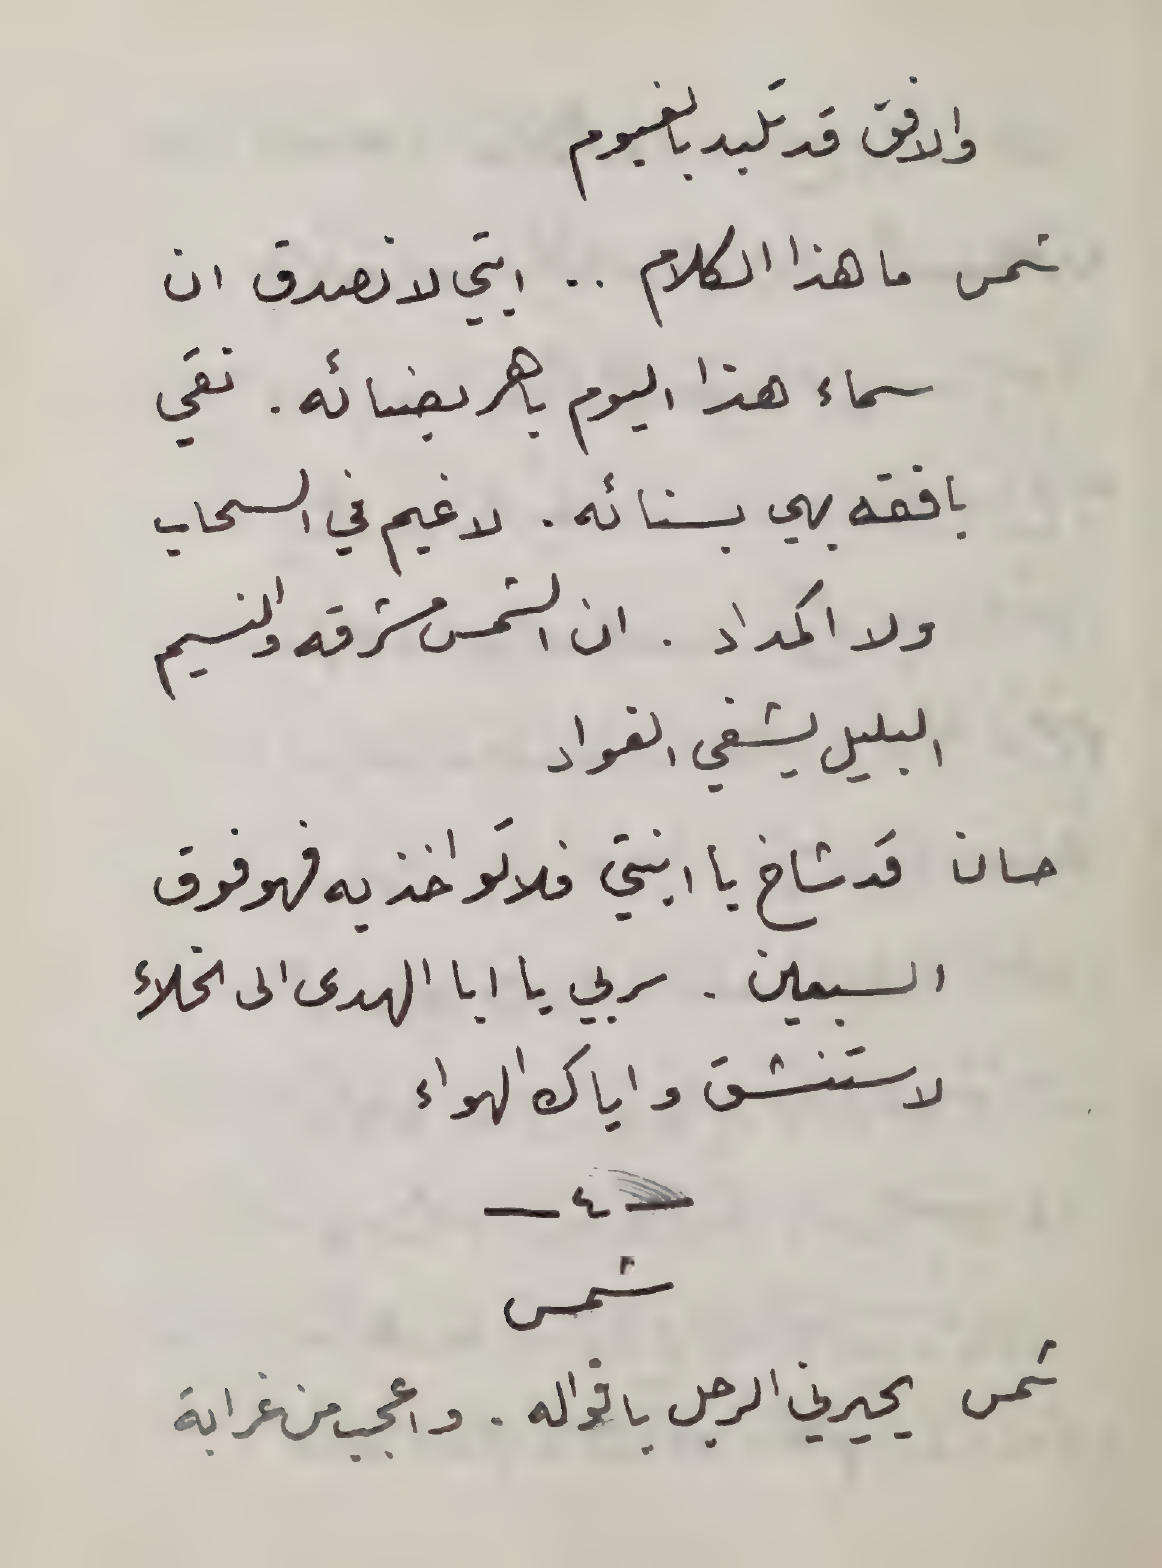 والافق قد تلبد بالغيوم
شمس ما هذا الكلام .. ابنتي لا نصدق ان
سماء هذا اليوم باهر بضيائه . نقي
بافقه بهي بسنائه . لا غيم في السحاب
ولا اكمداد . ان الشمس مشرقه والنسيم
البليل يشفي الفواد
حسان قد شاخ يا ابنتي فلا تواخذيه فهو فوق
السبعين . سر بي يا ابا الهدى الى الخلاء
لاستنشق واياك الهواء
— ٤ —
شمس
شمس يحيرني الرجل باقواله . واعجب من غرابة